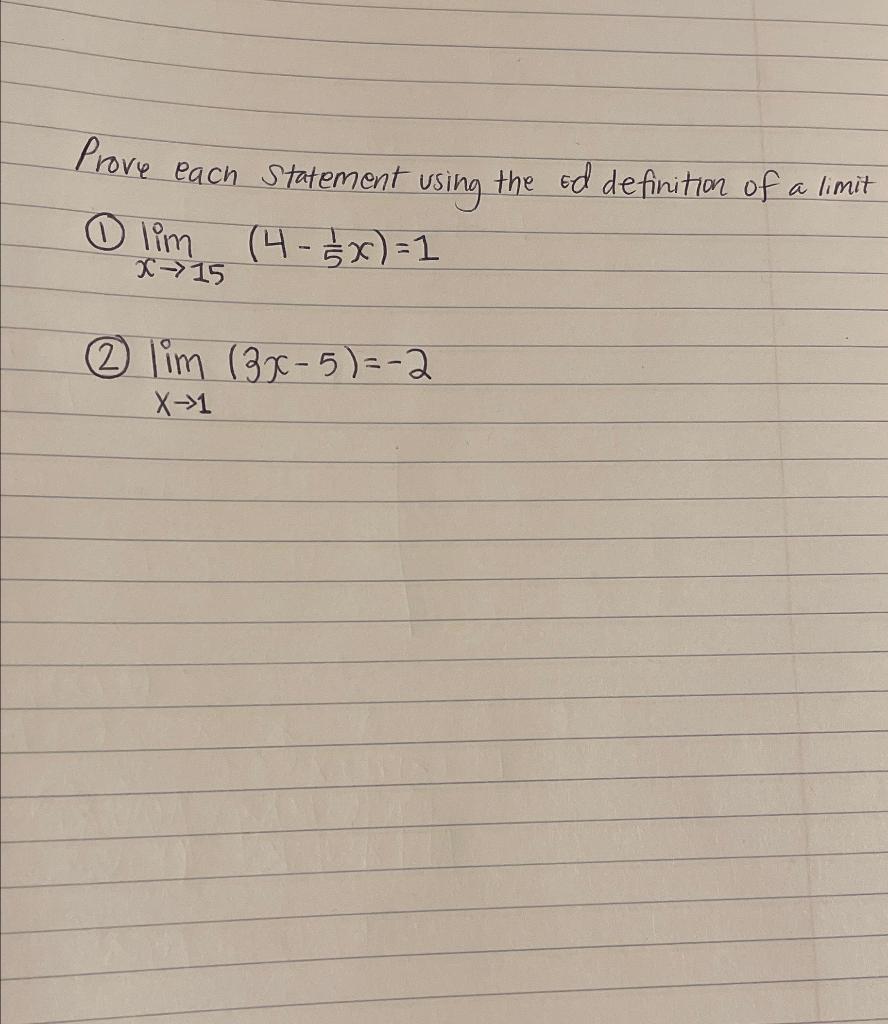 Prove each statement using the εd definition of a limit
① lim (4 - 1/5 x) = 1
x→15
② lim (3x - 5) = -2
x→1